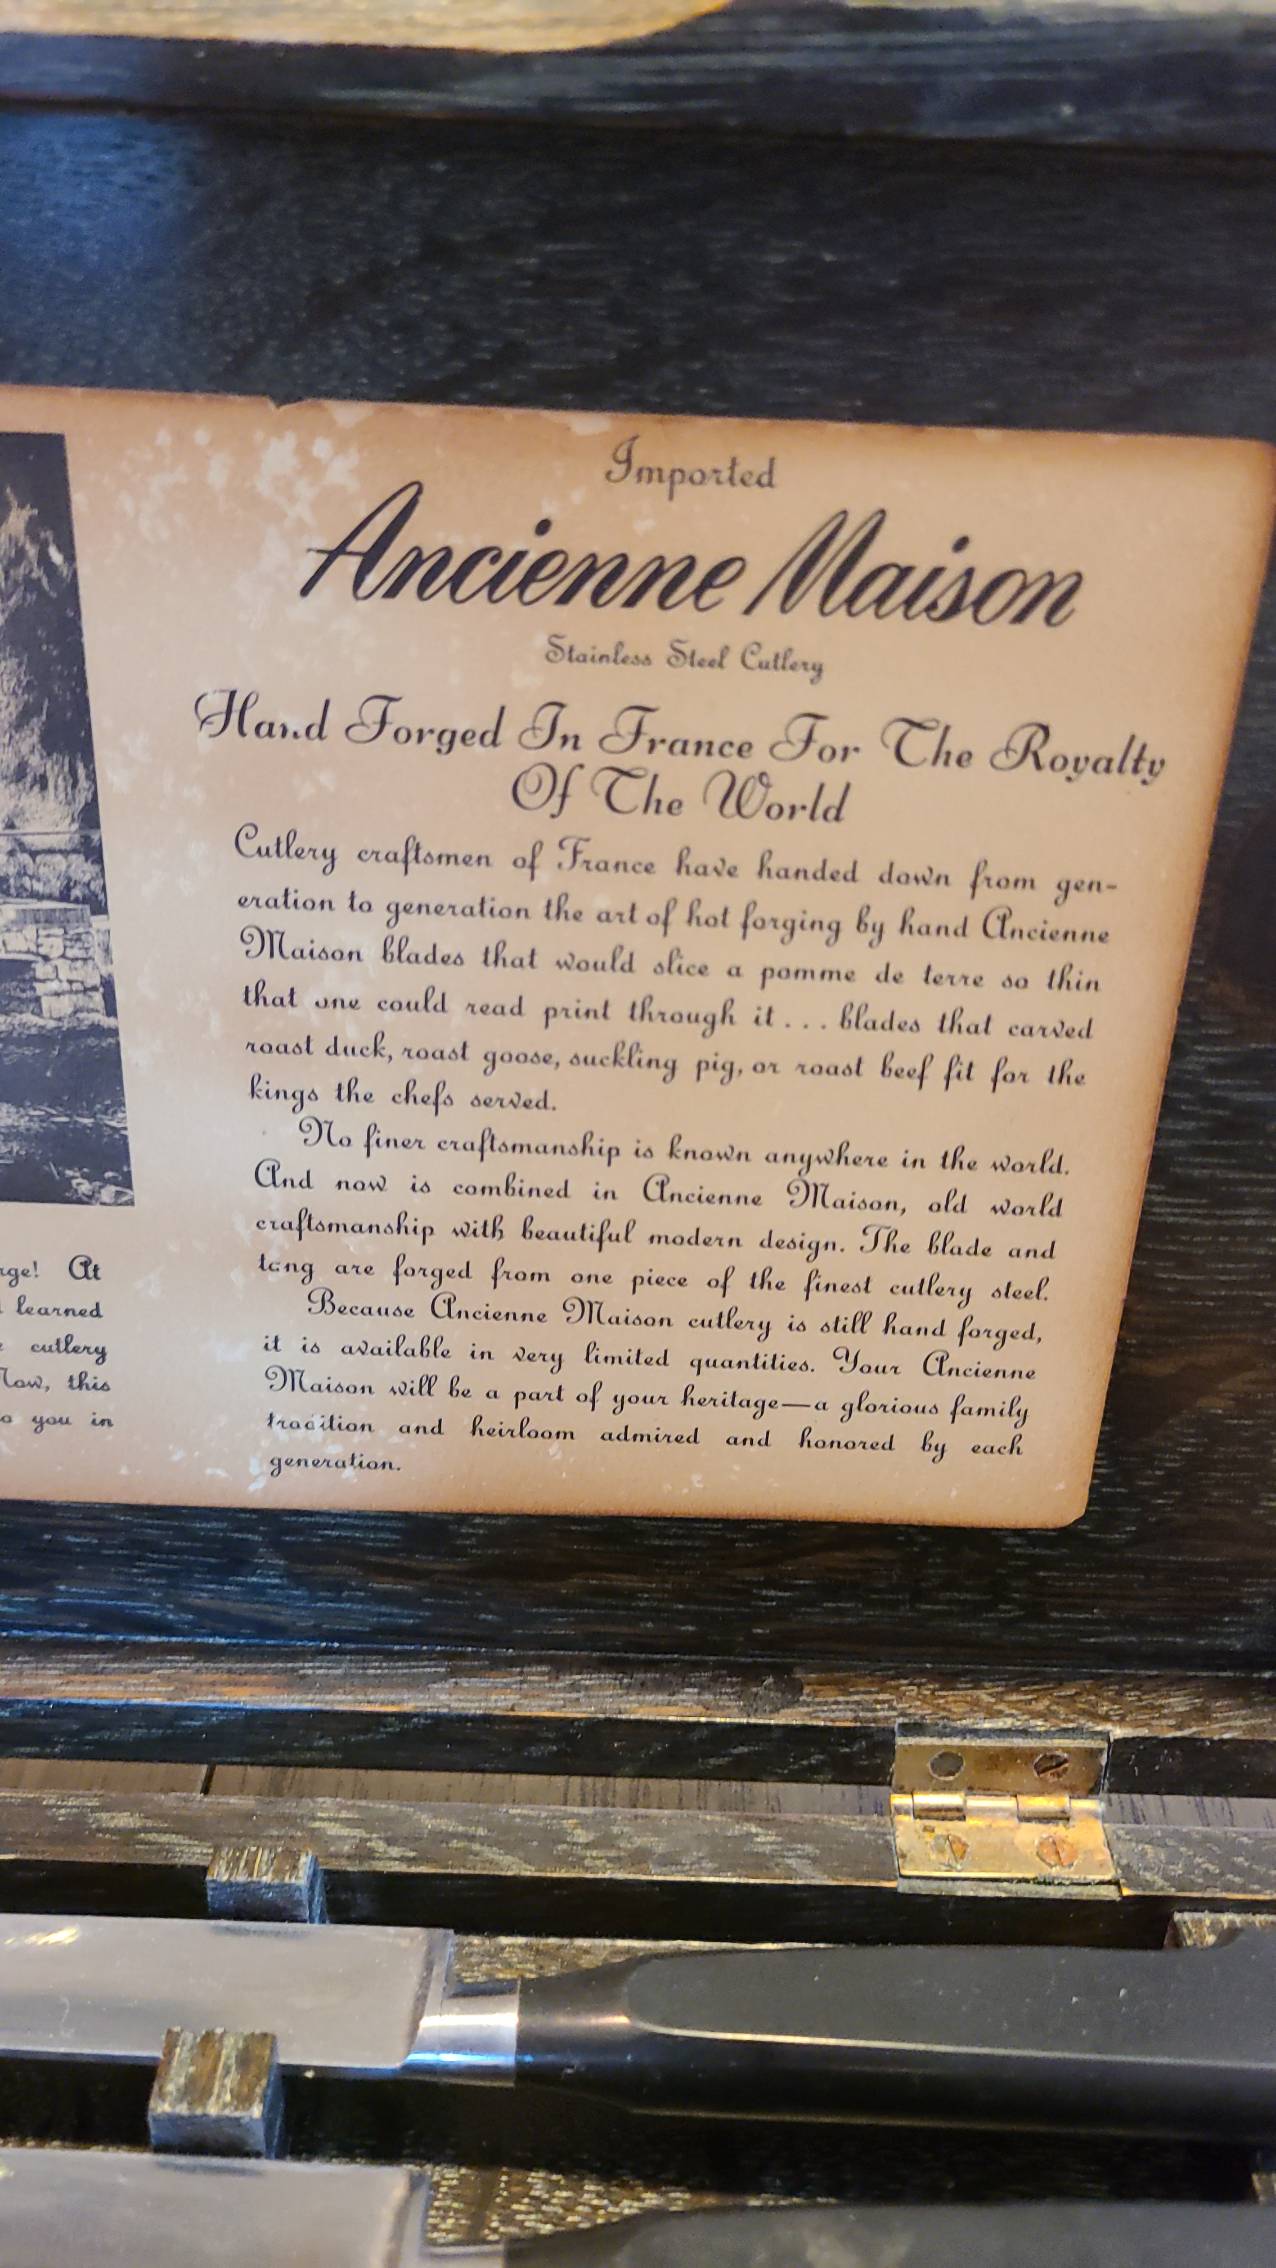 Imported
Ancienne Maison
Stainless Steel Cutlery
Hand Forged In France For The Royalty
Of The World
Cutlery craftsmen of France have handed down from gen-
eration to generation the art of hot forging by hand Ancienne
Maison blades that would slice a pomme de terre so thin
that one could read print through it . . . blades that carved
roast duck, roast goose, suckling pig, or roast beef fit for the
kings the chefs served.
No finer craftsmanship is known anywhere in the world.
And now is combined in Ancienne Maison, old world
craftsmanship with beautiful modern design. The blade and
tang are forged from one piece of the finest cutlery steel.
Because Ancienne Maison cutlery is still hand forged,
it is available in very limited quantities. Your Ancienne
Maison will be a part of your heritage—a glorious family
tradition and heirloom admired and honored by each
generation.
At
learned
cutlery
this
you in